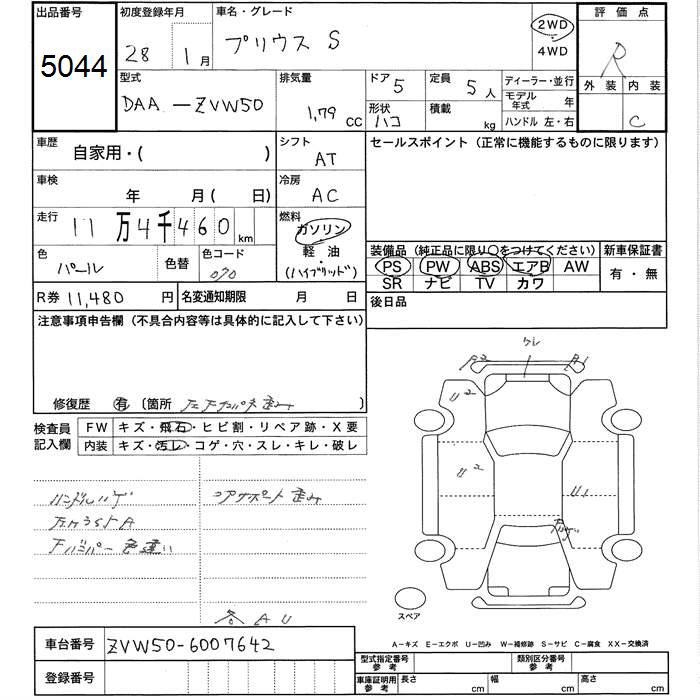 出品番号 初度登録年月 車名・グレード 評価点
5044 28 1月 プリウス S 2WD R
4WD
型式 排気量 ドア 5 定員 5人 ディーラー・並行 外装 内装
DAA-ZVW50 1,79 CC 形状 ハコ 積載 kg モデル年式 年 C
ハンドル 左・右
車歴 自家用・( ) シフト AT セールスポイント (正常に機能するものに限ります)
車検 年 月( 日) 冷房 AC
走行 11万4千460km 燃料 ガソリン・軽油・(ハイブリッド)
装備品 (純正品に限り○をつけてください) 新車保証書
色 パール 色替 色コード 070 PS PW ABS エアB AW 有・無
SR ナビ TV カワ
R券 11,480円 名変通知期限 月 日 後日品
注意事項申告欄 (不具合内容等は具体的に記入して下さい)
修復歴 有 〔箇所 〕
検査員記入欄 FW キズ・飛石・ヒビ割・リペア跡・X要
内装 キズ・汚レ・コゲ・穴・スレ・キレ・破レ
ハンドルハゲ コアサポート歪み
下バンパー色違い
A U
U2
U2
U1
スペア
車台番号 ZVW50-6007642
A-キズ E-エクボ U-凹み W-補修跡 S-サビ C-腐食 XX-交換済
登録番号
型式指定番号 参考 類別区分番号 参考
車庫証明用 参考 長さ cm 幅 cm 高さ cm